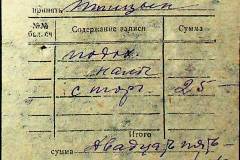 принять
№№ бал. сч. Содержание записи Сумма
подох.
налог
с торг 25
Итого
сумма Двадцать пять